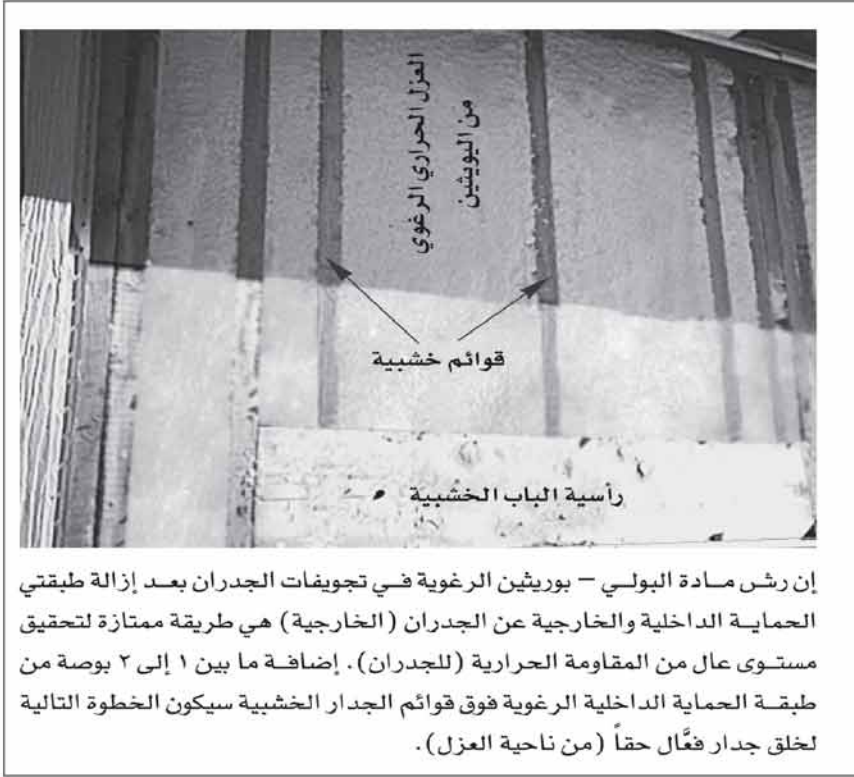 العزل الحراري الرغوي
من اليويثين
قوائم خشبية
رأسية الباب الخشبية
إن رش مادة البولي – بوريثين الرغوية في تجويفات الجدران بعد إزالة طبقتي
الحماية الداخلية والخارجية عن الجدران (الخارجية) هي طريقة ممتازة لتحقيق
مستوى عال من المقاومة الحرارية (للجدران). إضافة ما بين ١ إلى ٢ بوصة من
طبقة الحماية الداخلية الرغوية فوق قوائم الجدار الخشبية سيكون الخطوة التالية
لخلق جدار فعَّال حقاً (من ناحية العزل).